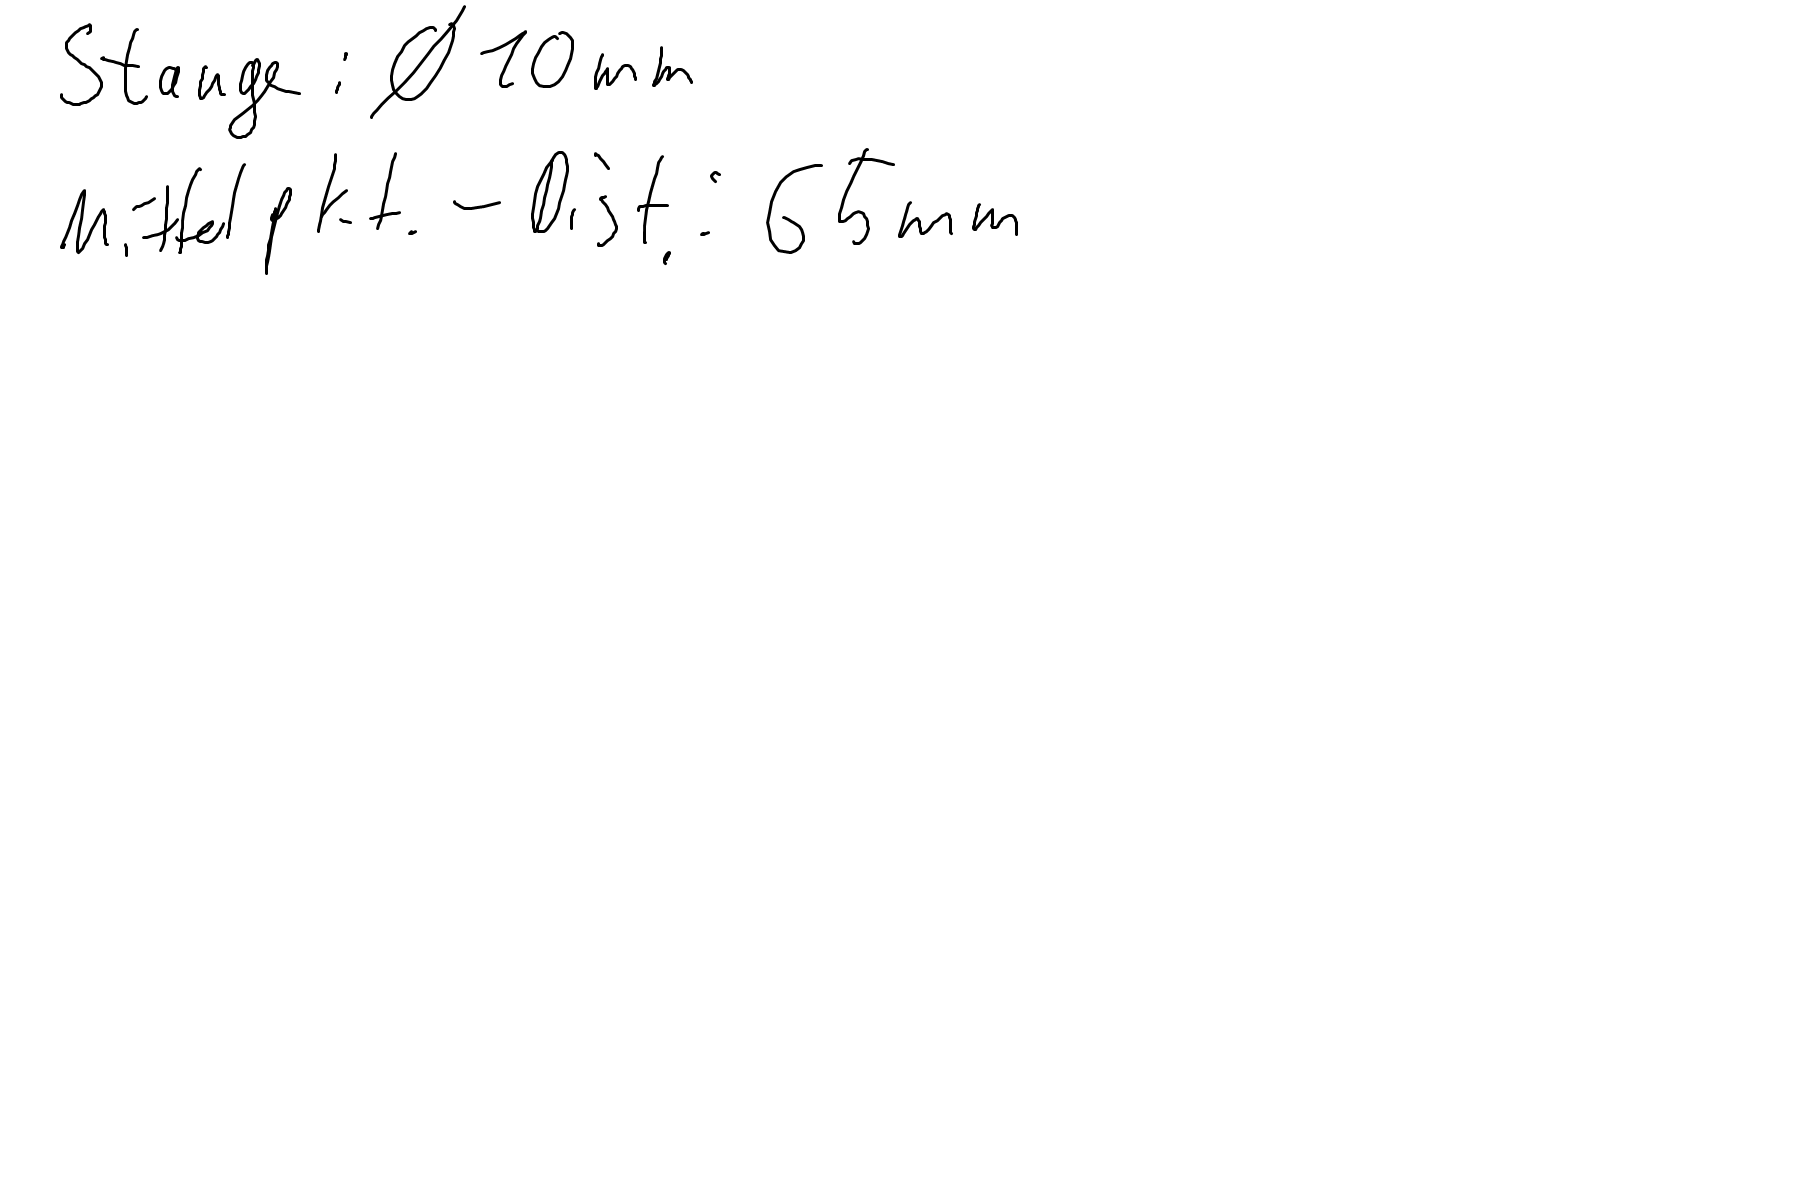 Stange: Ø 10mm
Mittelpkt.-Dist.: 65mm